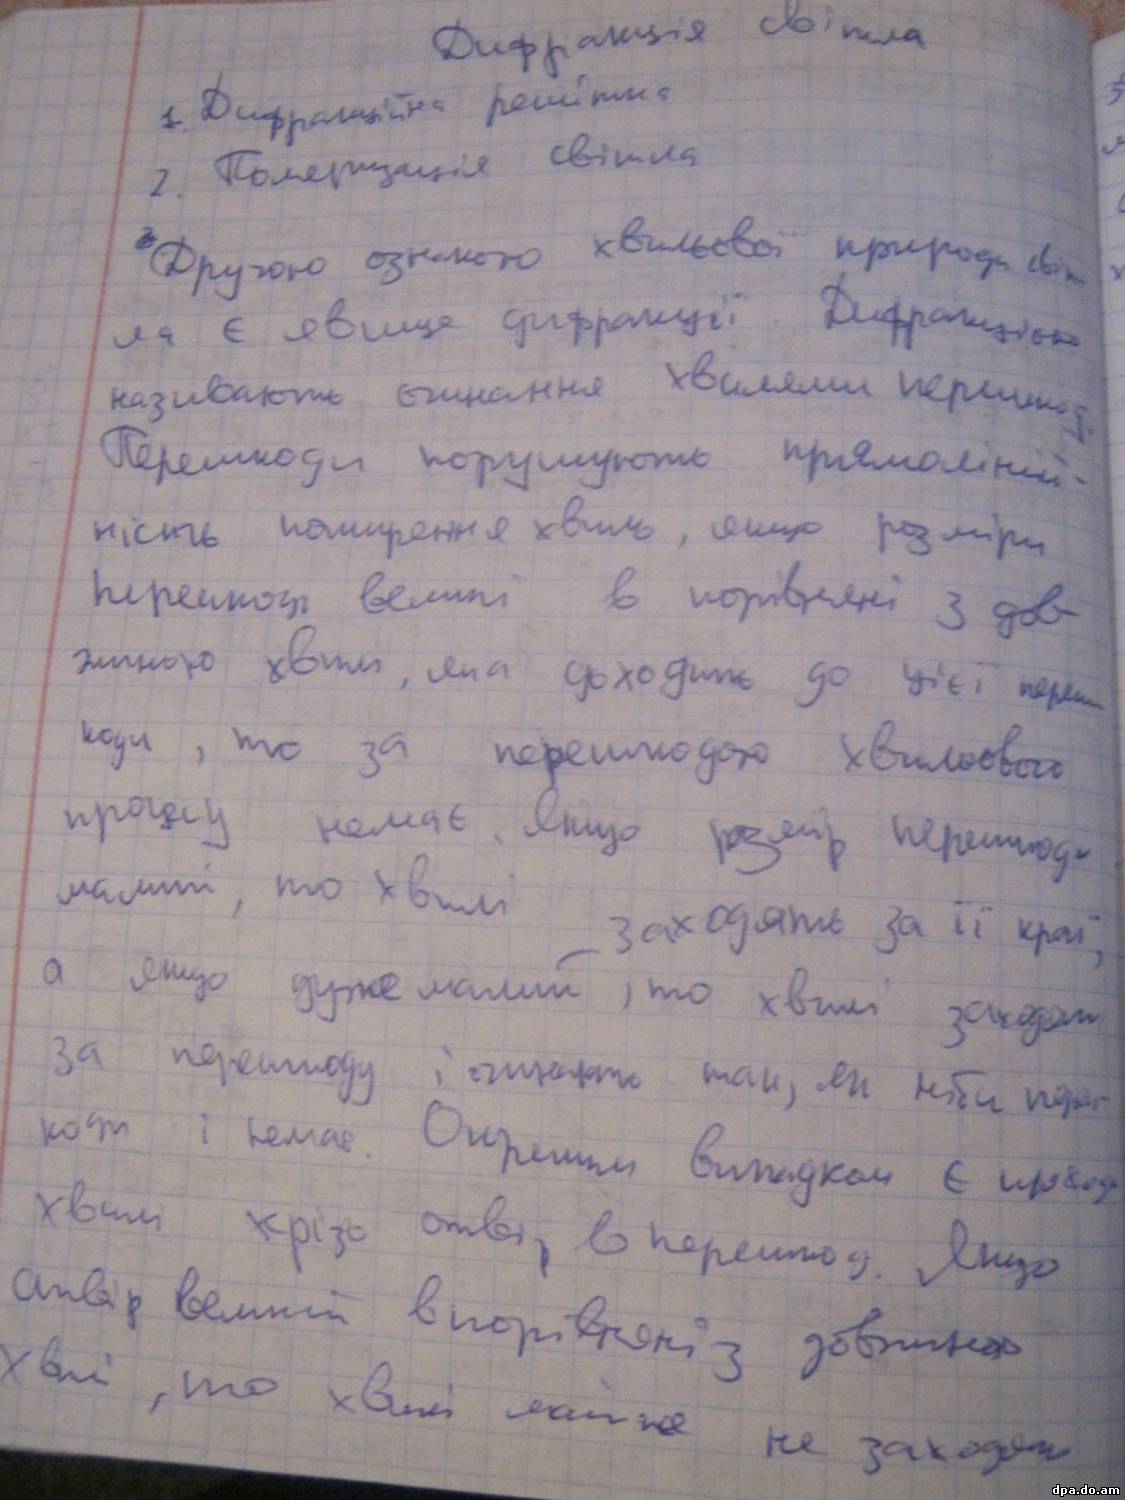 Дифракція світла
1. Дифракційна решітка
2. Поляризація світла
Другою ознакою хвильової природи світ
ла є явище дифракції. Дифракцією
називають огинання хвилями перешкод.
Перешкоди порушують прямоліній-
ність поширення хвиль, якщо розміри
перешкоди великі в порівнянні з дов-
жиною хвилі, яка доходить до цієї переш
коди, то за перешкодою хвильового
процесу немає. Якщо розмір перешкоди
малий, то хвилі заходять за її краї,
а якщо дуже малий, то хвилі заходять
за перешкоду і так, як ніби переш-
коди і немає. Окремим випадком є
хвилі крізь отвір в перешкод. Якщо
отвір великий в порівнянні з довжиною
хвилі, то хвилі майже не заходять
dpa.do.am